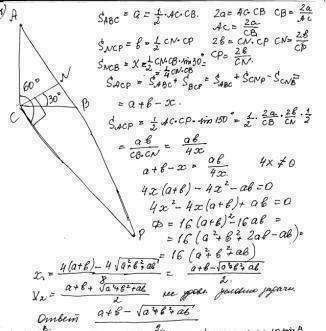 A
60°
30°
C
N
B
P
S_ABC = a = 1/2 · AC · CB. 2a = AC · CB CB = 2a/AC
AC = 2a/CB
S_NCP = b = 1/2 CN · CP 2b = CN · CP CN = 2b/CP
S_NCB = X = 1/2 CN · CB · sin 30° = 1/4 CN · CB CP = 2b/CN
S_ACP = S_ABC + S_BCP = S_ABC + S_CNP − S_CNB =
= a + b − x.
S_ACP = 1/2 AC · CP · sin 150° = 1/2 · 2a/CB · 2b/CN · 1/2
= ab/(CB · CN) = ab/4x
a + b − x = ab/4x 4x ≠ 0
4x(a+b) − 4x² − ab = 0
4x² − 4x(a+b) + ab = 0
D = 16(a+b)² − 16ab =
= 16(a² + b² + 2ab − ab) =
= 16(a² + b² + ab)
x₁ = (4(a+b) − 4√(a²+b²+ab))/8 = (a+b−√(a²+b²+ab))/2
x₂ = (a+b+√(a²+b²+ab))/2 не удовл. условию задачи
Ответ (a+b−√(a²+b²+ab))/2